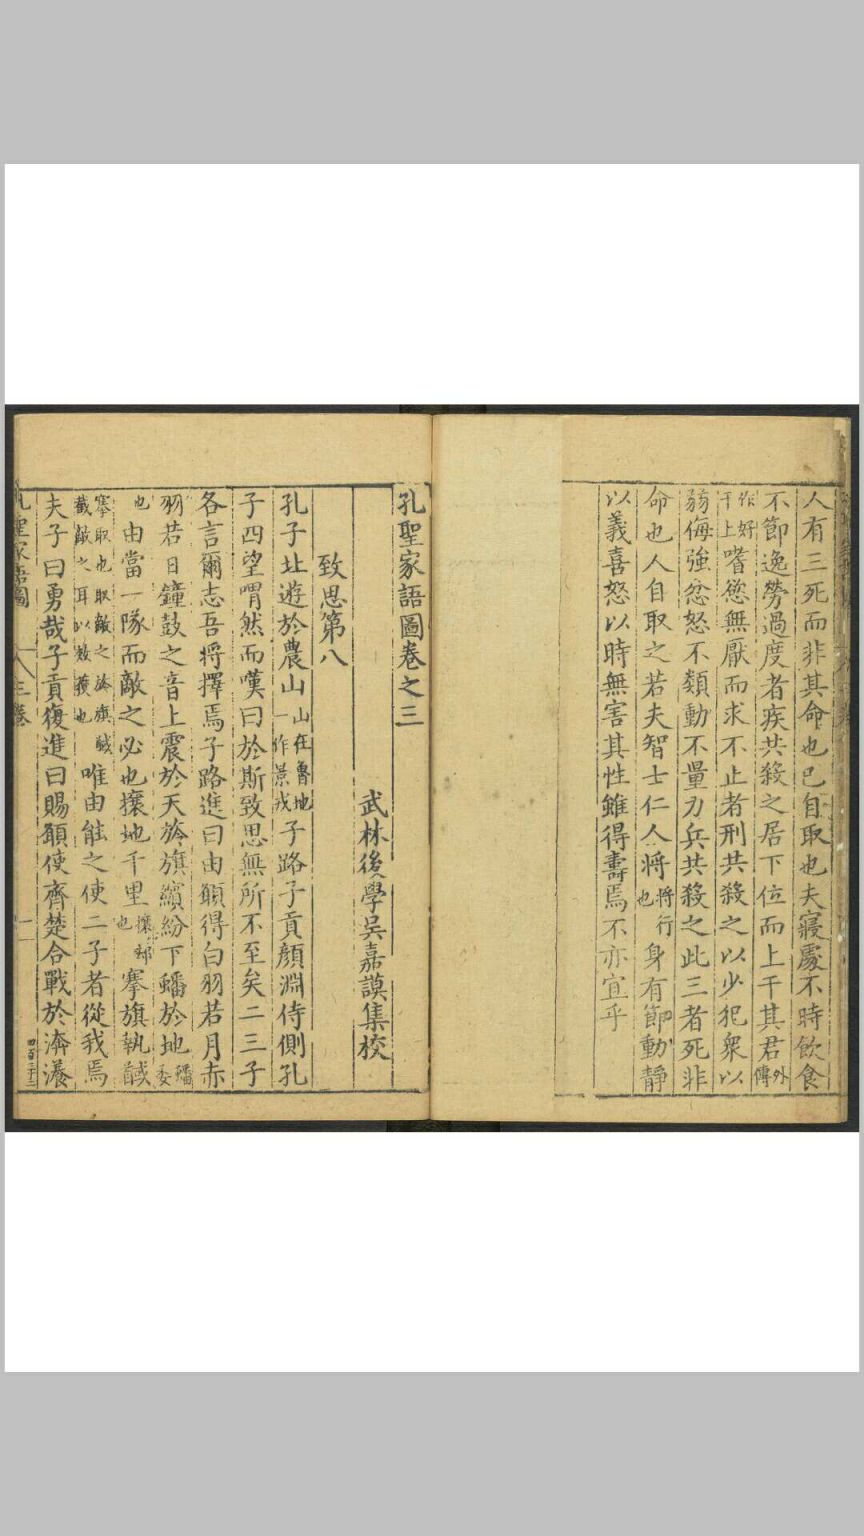 人有三死而非其命也已自取也夫寢處不時飲食
不節逸勞過度者疾共殺之居下位而上干其君外傳
作好干上嗜慾無厭而求不止者刑共殺之以少犯衆以
弱侮強忿怒不類動不量力兵共殺之此三者死非
命也人自取之若夫智士仁人將將行也身有節動靜
以義喜怒以時無害其性雖得壽焉不亦宜乎
孔聖家語圖卷之三
武林後學吳嘉謨集校
致思第八
孔子北遊於農山山在魯地一作景戎子路子貢顏淵侍側孔
子四望喟然而嘆曰於斯致思無所不至矣二三子
各言爾志吾將擇焉子路進曰由願得白羽若月赤
羽若日鐘鼓之音上震於天旍旗繽紛下蟠於地蟠委
也由當一隊而敵之必也攘地千里攘卻也搴旗執馘
搴取也取敵之旍旗馘截敵之耳以效獲也唯由能之使二子者從我焉
夫子曰勇哉子貢復進曰賜願使齊楚合戰於漭瀁
孔聖家語圖 三卷 一